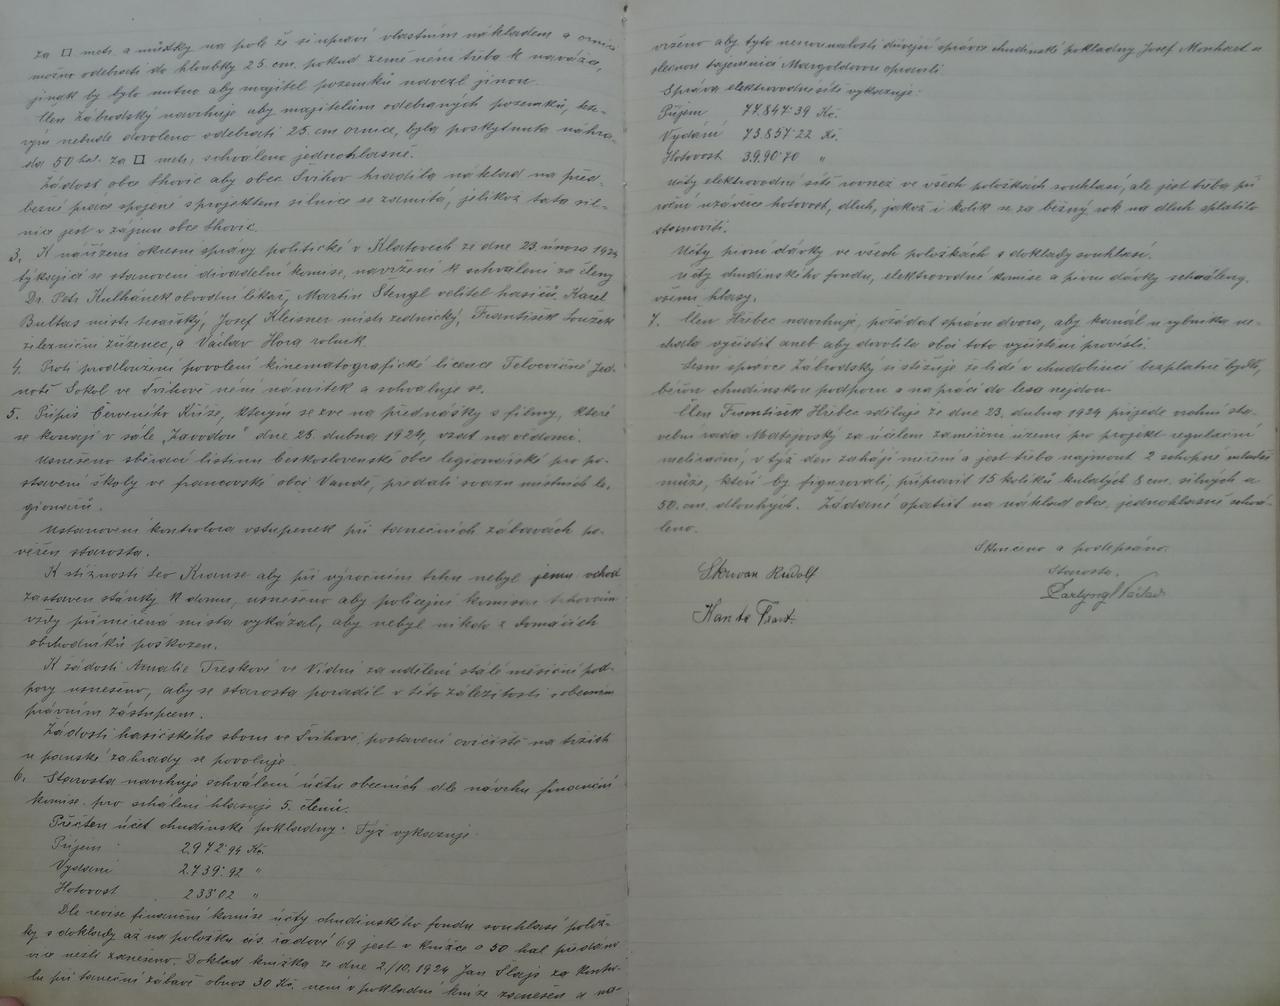 za □ metr. a můstky na pole že si upraví vlastním nákladem a ornici
možno odebrati do hloubky 25 cm. pokud země není třeba k naváže,
jinak by bylo nutno aby majitel pozemků navezl jinou.
Člen Zábrodský navrhuje aby majitelům odebraných pozemků, kte-
rým nebude dovoleno odebrati 25 cm ornice, byla poskytnuta náhra-
da 50 hal. za □ metr, schváleno jednohlasně.
Žádost obce Lhovic aby obec Švihov hradila náklad na před-
běžné práce spojené s projektem silnice se zamítá, jelikož tato sil-
nice jest v zájmu obce Lhovic.
3. K nařízení okresní správy politické v Klatovech ze dne 23. února 1924
týkající se stanovení divadelní komise, navrženi k schválení za členy
Dr. Petr Kulhánek obvodní lékař, Martin Stengl velitel hasičů, Karel
Bultas mistr tesařský, Josef Kleisner mistr zednický, František Loužek
železniční zřízenec, a Václav Hora rolník.
4. Proti prodloužení povolení kinematografické licence Tělocvičné Jed-
notě Sokol ve Švihově není námitek a schvaluje se.
5. Přípis Červeného Kříže, kterým se zve na přednášky s filmy, které
se konají v sále „Závodou" dne 25. dubna 1924, vzat na vědomí.
Usnešeno sbírací listinu československé obce legionářské pro po-
stavení školy ve francouzské obci Vandé, předati svazu místních le-
gionářů.
Ustanovení kontrolora vstupenek při tanečních zábavách po-
věřen starosta.
K stížnosti Leo Krause aby při výročním trhu nebyl jemu vchod
zastaven stánky k domu, usnešeno aby policejní komisař trhovcům
vždy přiměřená místa vykázal, aby nebyl nikdo z domácích
obchodníků poškozen.
K žádosti Amalie Treskové ve Vídni za udělení stálé měsíční pod-
pory usnešeno, aby se starosta poradil v této záležitosti s obecním
právním zástupcem.
Žádosti hasičského sboru ve Švihově, postavení cvičiště na tržišti
u panské zahrady se povoluje.
6. Starosta navrhuje schválení účtů obecních dle návrhu finanční
komise. pro schálení hlasuje 5. členů.
Přečten účet chudinské pokladny. Týž vykazuje
Příjem 2972·94 Kč.
Vydání 2739·92 „
Hotovost 233·02 „
Dle revise finanční komise účty chudinského fondu souhlasí polož-
ky s doklady až na položku čís. řadové 69 jest v knížce o 50 hal předáno
více nežli zanešeno. Doklad knížka ze dne 2/10. 1924 Jan Šlajs za kontro-
lu při taneční zábavě obnos 30 Kč. není v pokladní knize zanešen a na-
vrženo aby tyto nesrovnalosti dřívější správce chudinské pokladny Josef Monhart a
slečnou tajemnicí Margoldovou opravili.
Správa elektrovodné sítě vykazuje:
Příjem 77.847·39 Kč.
Vydání 73.857·22 Kč.
Hotovost 3.990·70 „
Účty elektrovodné sítě rovněž ve všech položkách souhlasí, ale jest třeba při
roční uzávěrce hotovost, dluh, jakož i kolik se za běžný rok na dluh splatilo
stanoviti.
Účty pivní dávky ve všech položkách s doklady souhlasí.
Účty chudinského fondu, elektrovodné komise a pivní dávky schváleny
všemi hlasy.
7. Člen Hřebec navrhuje, požádat správu dvora, aby kanál u rybníka ne-
chala vyčistit aneb aby dovolila obci toto vyčistění provésti.
Lesní správce Zábrodský si stěžuje že lidé v chudobinci bezplatně bydlí,
berou chudinskou podporu a na práci do lesa nejdou.
Člen František Hřebec sděluje že dne 23. dubna 1924 přijede vrchní sta-
vební rada Matějovský za účelem zaměření území pro projekt regulační
meliorační, v týž den zahájí měření a jest třeba najmout 2 schopné mladší
muže, kteří by figurovali, připravit 15 kolíků kulatých 8 cm. silných a
50 cm. dlouhých. Žádané opatřit na náklad obce, jednohlasně schvá-
leno.
Skončeno a podepsáno.
Starosta.
Rudolf
Kanta Frant.